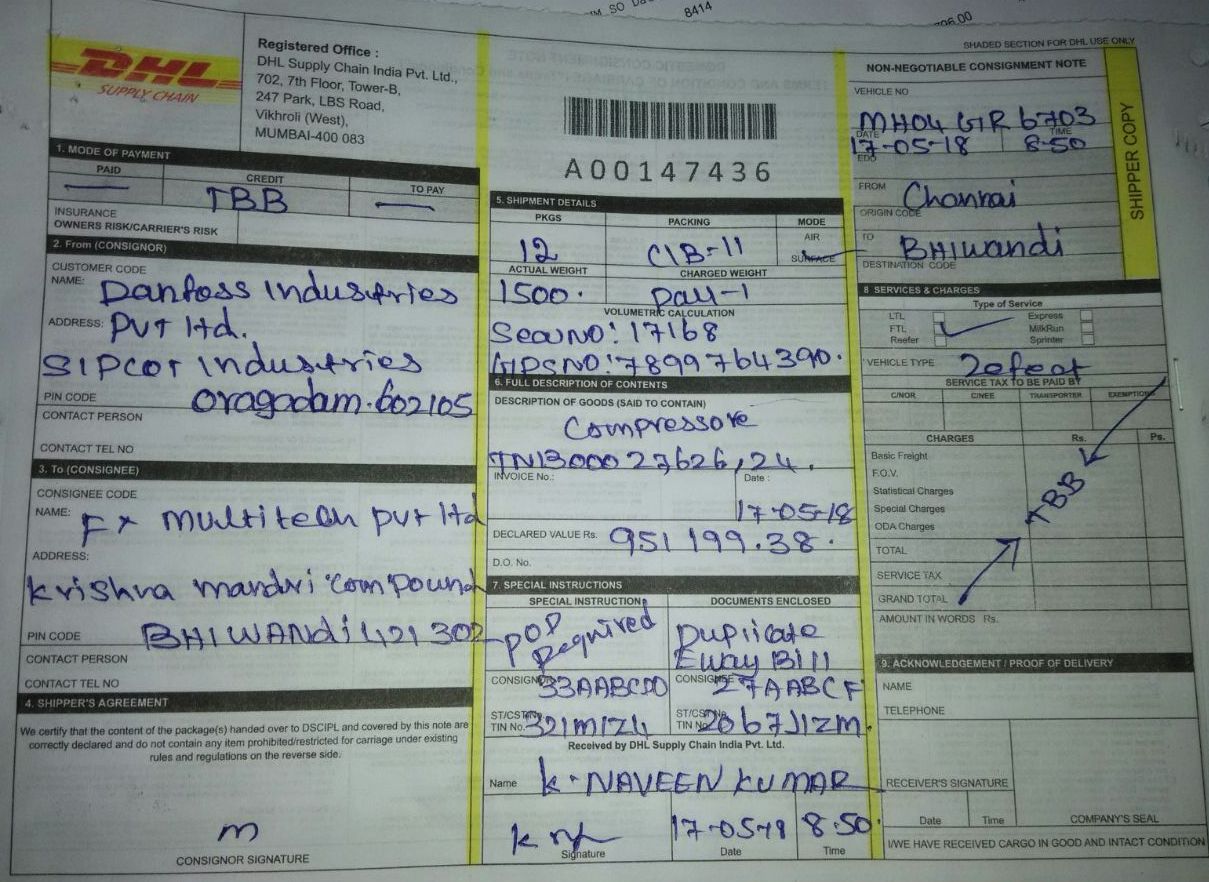 8414
706.00
SHADED SECTION FOR DHL USE ONLY
DHL
SUPPLY CHAIN
Registered Office :
DHL Supply Chain India Pvt. Ltd.,
702, 7th Floor, Tower-B,
247 Park, LBS Road,
Vikhroli (West),
MUMBAI-400 083
1. MODE OF PAYMENT
PAID
CREDIT
TO PAY
TBB
INSURANCE
OWNERS RISK/CARRIER'S RISK
2. From (CONSIGNOR)
CUSTOMER CODE
NAME: Danfoss Industries
ADDRESS: Pvt ltd.
SIPCOT Industries
PIN CODE Oragadam.602105
CONTACT PERSON
CONTACT TEL NO
3. To (CONSIGNEE)
CONSIGNEE CODE
NAME: Fx multitech pvt ltd
ADDRESS:
krishna mandvi compound
PIN CODE BHIWANDi 421 302
CONTACT PERSON
CONTACT TEL NO
4. SHIPPER'S AGREEMENT
We certify that the content of the package(s) handed over to DSCIPL and covered by this note are
correctly declared and do not contain any item prohibited/restricted for carriage under existing
rules and regulations on the reverse side.
CONSIGNOR SIGNATURE
A00147436
5. SHIPMENT DETAILS
PKGS PACKING MODE
12 C/B-11 AIR
SURFACE
ACTUAL WEIGHT CHARGED WEIGHT
1500. Pall-1
VOLUMETRIC CALCULATION
Seal NO: 17168
GPS NO: 7899764390.
6. FULL DESCRIPTION OF CONTENTS
DESCRIPTION OF GOODS (SAID TO CONTAIN)
Compressore
TN13000 27626, 24.
INVOICE No.: Date :
17-05-18
DECLARED VALUE Rs. 951 199.38.
D.O. No.
7. SPECIAL INSTRUCTIONS
SPECIAL INSTRUCTION DOCUMENTS ENCLOSED
POD Required
Duplicate
Eway Bill
CONSIGNOR 33AABCD0
CONSIGNEE 27AABCF
ST/CST No.
TIN No. 321M1Z4
ST/CST No.
TIN No. 2067J1ZM.
Received by DHL Supply Chain India Pvt. Ltd.
Name K. NAVEEN KUMAR
17-05-18 8.50.
Signature Date Time
NON-NEGOTIABLE CONSIGNMENT NOTE
VEHICLE NO
MH04 GR 6703
DATE TIME
17-05-18 8.50
EDD
FROM Chennai
ORIGIN CODE
TO BHIwandi
DESTINATION CODE
SHIPPER COPY
8 SERVICES & CHARGES
Type of Service
LTL Express
FTL MilkRun
Reefer Sprinter
VEHICLE TYPE 20feet
SERVICE TAX TO BE PAID BY
C/NOR C/NEE TRANSPORTER EXEMPTION
CHARGES Rs. Ps.
Basic Freight
F.O.V.
Statistical Charges
Special Charges
ODA Charges
TBB
TOTAL
SERVICE TAX
GRAND TOTAL
AMOUNT IN WORDS Rs.
9. ACKNOWLEDGEMENT / PROOF OF DELIVERY
NAME
TELEPHONE
RECEIVER'S SIGNATURE
Date Time COMPANY'S SEAL
I/WE HAVE RECEIVED CARGO IN GOOD AND INTACT CONDITION